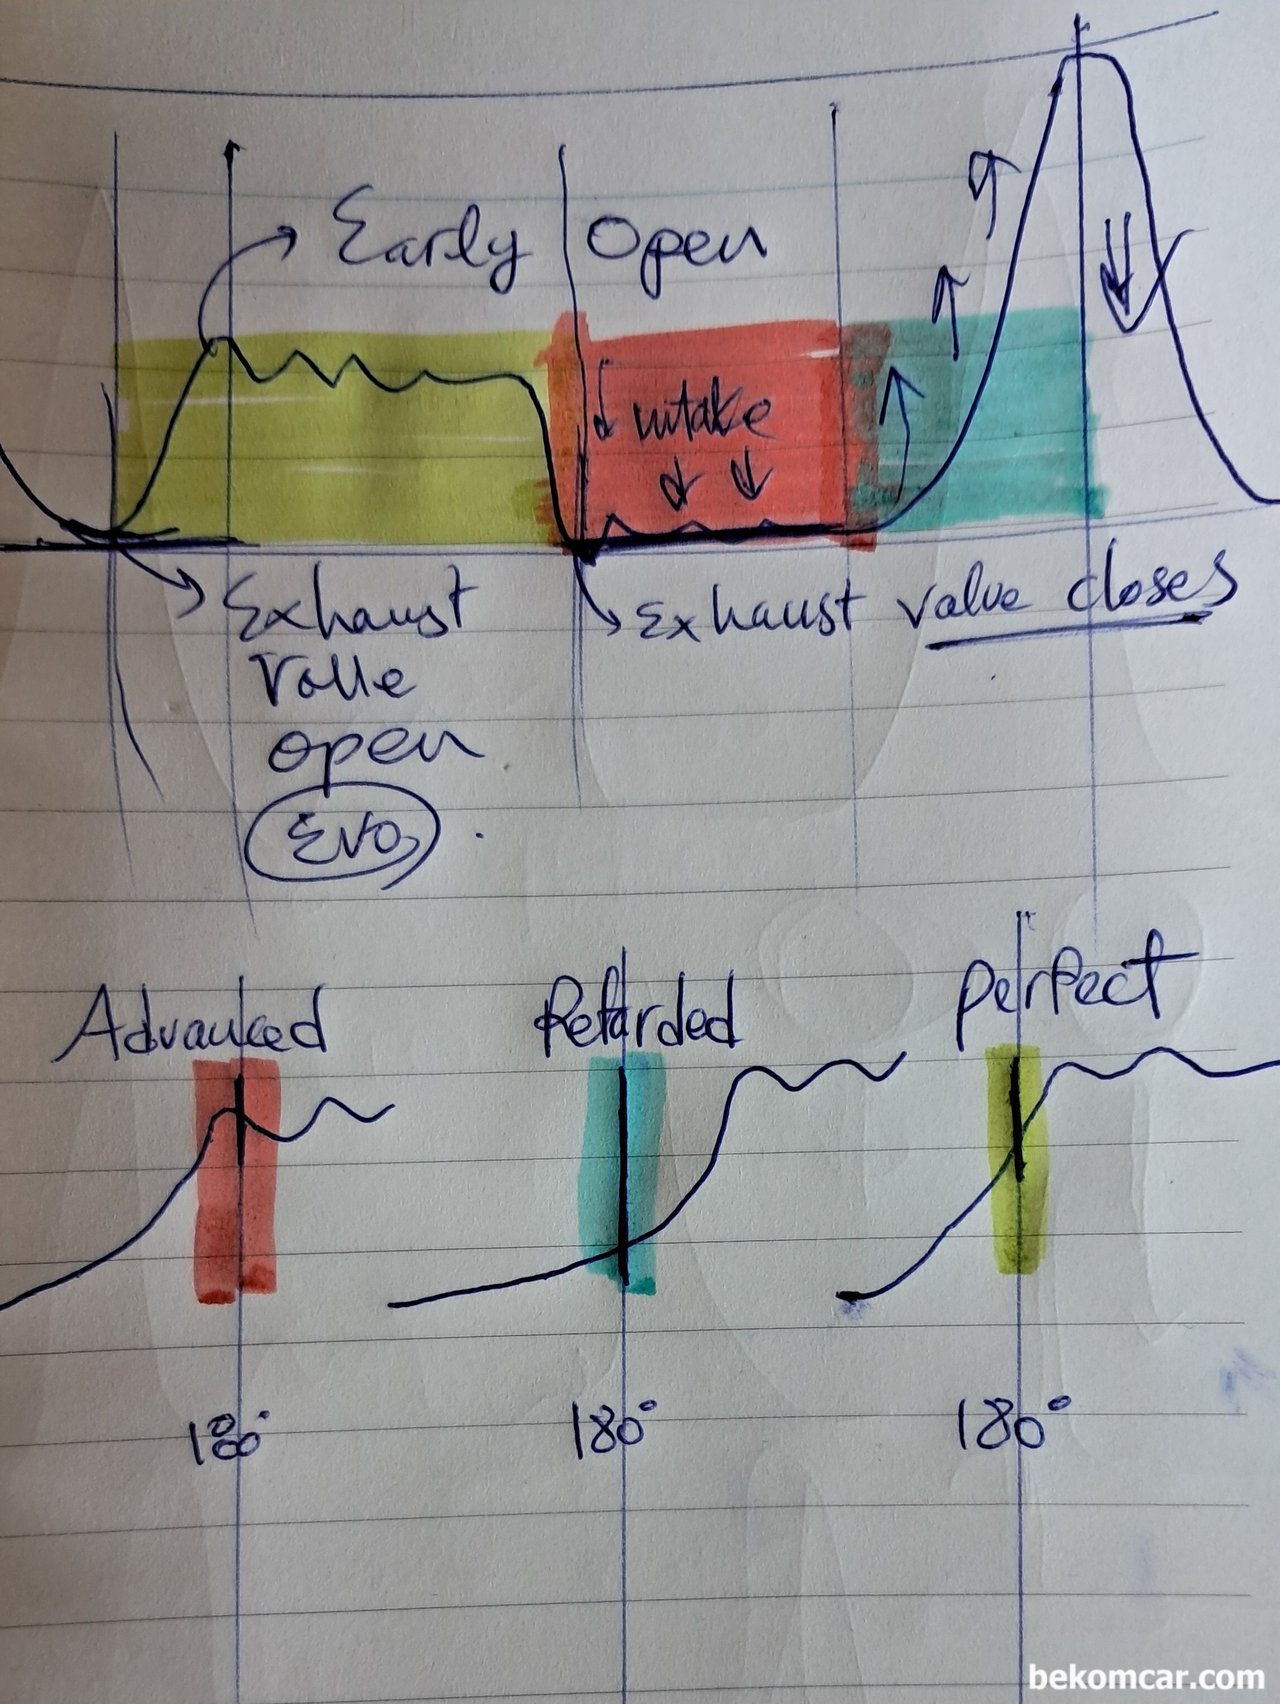 Early Open
intake
Exhaust
Valve
open
EVO
Exhaust valve closes
Advanced
Retarded
perfect
180°
180°
180°
bekomcar.com